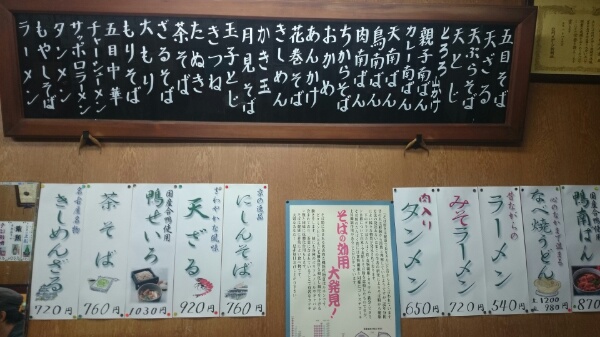 五目そば
天ざる
天ぷらそば
天とじ
とろろ 山かけ
親子南ばん
カレー南ばん
天南ばん
鳥南ばん
肉南ばん
ちからそば
おかめ
あんかけ
花巻そば
きしめん
かき玉
月見そば
玉子とじ
きつね
たぬき
茶そば
ざるそば
大もり
もりそば
五目中華
チャーシューメン
サッポロラーメン
タンメン
もやしそば
ラーメン
鴨南ばん
870
心のなかまで温まる
なべ焼うどん
上 1200
並 980円
昔ながらの
ラーメン
540円
みそラーメン
720円
肉入り
タンメン
650円
そばの効用
大発見!
京の逸品
にしんそば
760円
さわやかな風味
天ざる
920円
国産合鴨使用
鴨せいろ
1030円
茶そば
760円
名古屋名物
きしめんざる
720円